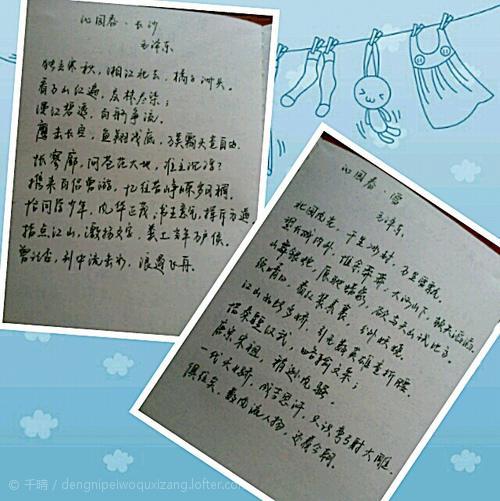 沁园春·长沙
毛泽东
独立寒秋,湘江北去,橘子洲头。
看万山红遍,层林尽染;
漫江碧透,百舸争流。
鹰击长空,鱼翔浅底,万类霜天竞自由。
怅寥廓,问苍茫大地,谁主沉浮?
携来百侣曾游,忆往昔峥嵘岁月稠。
恰同学少年,风华正茂;书生意气,挥斥方遒
指点江山,激扬文字,粪土当年万户侯。
曾记否,到中流击水,浪遏飞舟。
沁园春·雪
毛泽东
北国风光,千里冰封,万里雪飘。
望长城内外,惟余莽莽,大河上下,顿失滔滔。
山舞银蛇,原驰蜡象,欲与天公试比高。
须晴日,看红装素裹,分外妖娆。
江山如此多娇,引无数英雄竞折腰。
惜秦皇汉武,略输文采;
唐宗宋祖,稍逊风骚。
一代天骄,成吉思汗,只识弯弓射大雕。
俱往矣,数风流人物,还看今朝。
© 千晴 / dengnipeiwoquxizang.lofter.com